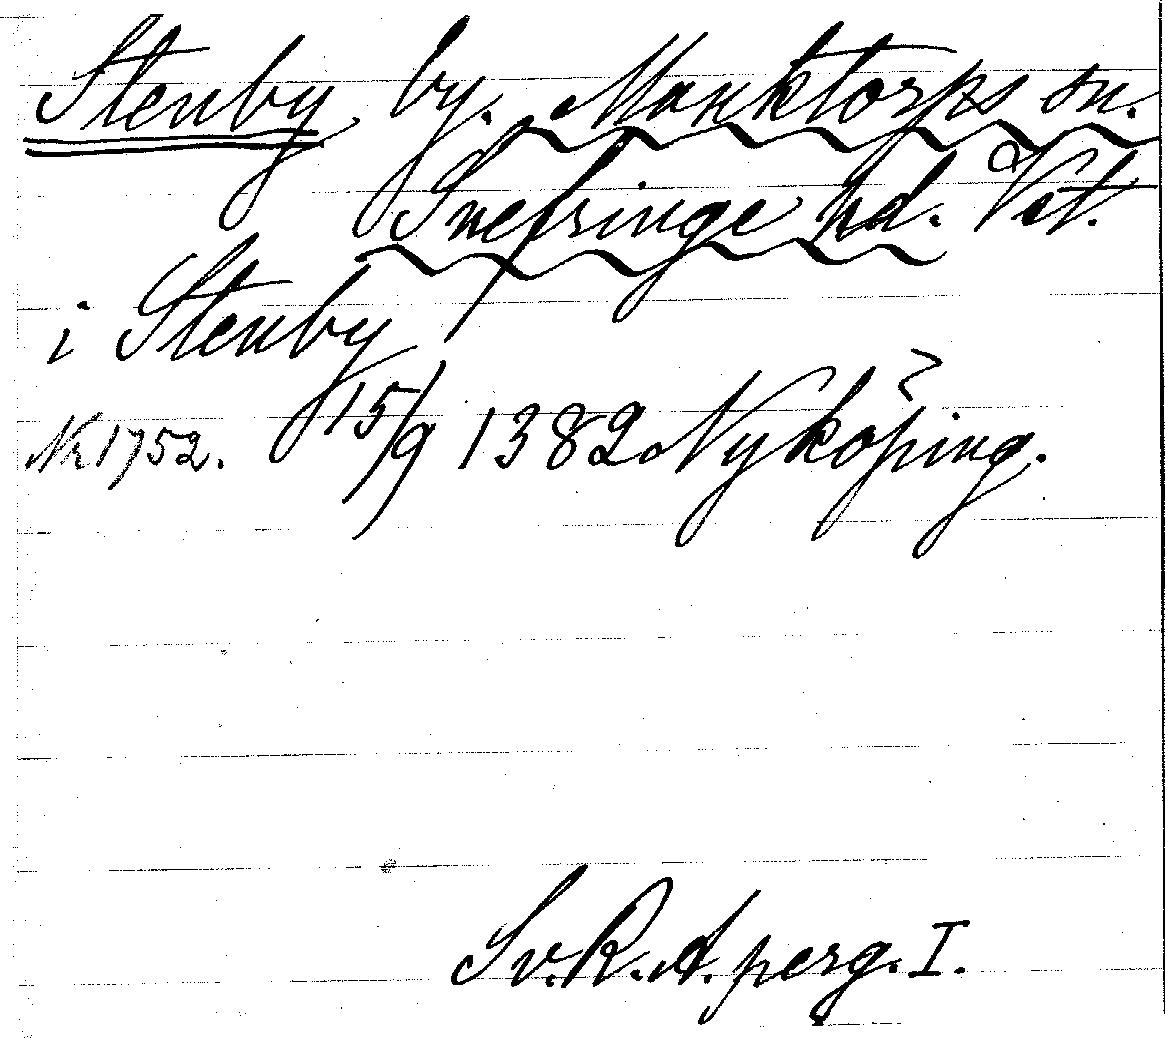 Stenby by. Munktorps sn.
Snefringe hd. Vst.
i Stenby
Nr 1752. 15/9 1382 Nyköping.
Sv. R. A. perg. I.